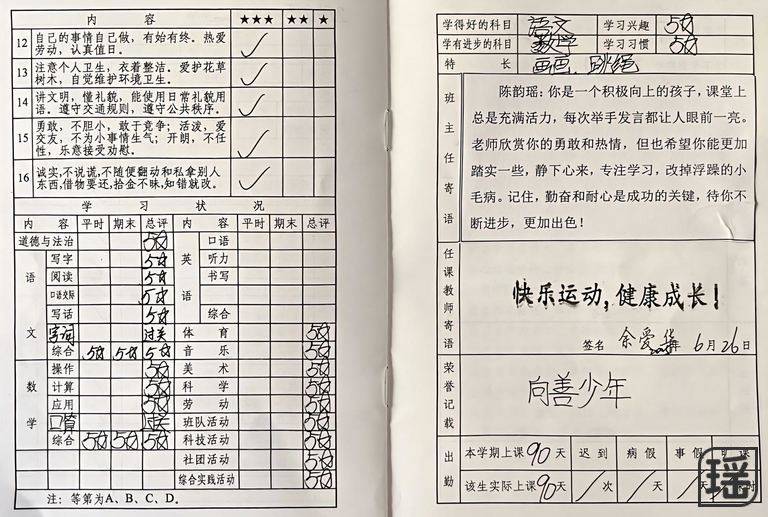 内 容 ★★★ ★★ ★
12 自己的事情自己做，有始有终。热爱
劳动，认真值日。
13 注意个人卫生，衣着整洁。爱护花草
树木，自觉维护环境卫生。
14 讲文明，懂礼貌，能使用日常礼貌用
语。遵守交通规则，遵守公共秩序。
15 勇敢，不胆小，敢于竞争；活泼，爱
交友，不为小事情生气；开朗，不任
性，乐意接受劝慰。
16 诚实，不说谎，不随便翻动和私拿别人
东西，借物要还，拾金不昧，知错就改。
学 习 状 况
内 容 平时 期末 总评 内 容 平时 期末 总评
道德与法治 5☆ 英语 口语
语文 写字 5☆ 听力
阅读 5☆ 书写
口语交际 5☆
写话 5☆ 综合
字词 过关 体 育 5☆
综合 5☆ 5☆ 5☆ 音 乐 5☆
数学 操作 5☆ 美 术 5☆
计算 5☆ 科 学 5☆
应用 5☆ 劳 动 5☆
口算 过关 班队活动 5☆
综合 5☆ 5☆ 5☆ 科技活动 5☆
社团活动 5☆
综合实践活动 5☆
注：等第为A、B、C、D。
学得好的科目 语文 学习兴趣 5☆
学有进步的科目 数学 学习习惯 5☆
特 长 画画、跳绳
班主任寄语
陈韵瑶：你是一个积极向上的孩子，课堂上
总是充满活力，每次举手发言都让人眼前一亮。
老师欣赏你的勇敢和热情，但也希望你能更加
踏实一些，静下心来，专注学习，改掉浮躁的小
毛病。记住，勤奋和耐心是成功的关键，待你不
断进步，更加出色！
任课教师寄语
快乐运动，健康成长！
签名 余爱华 6月26日
荣誉记载
向善少年
出勤 本学期上课90天 迟到 病假 事假 旷课
该生实际上课90天 /次 /天 /天 时
瑶